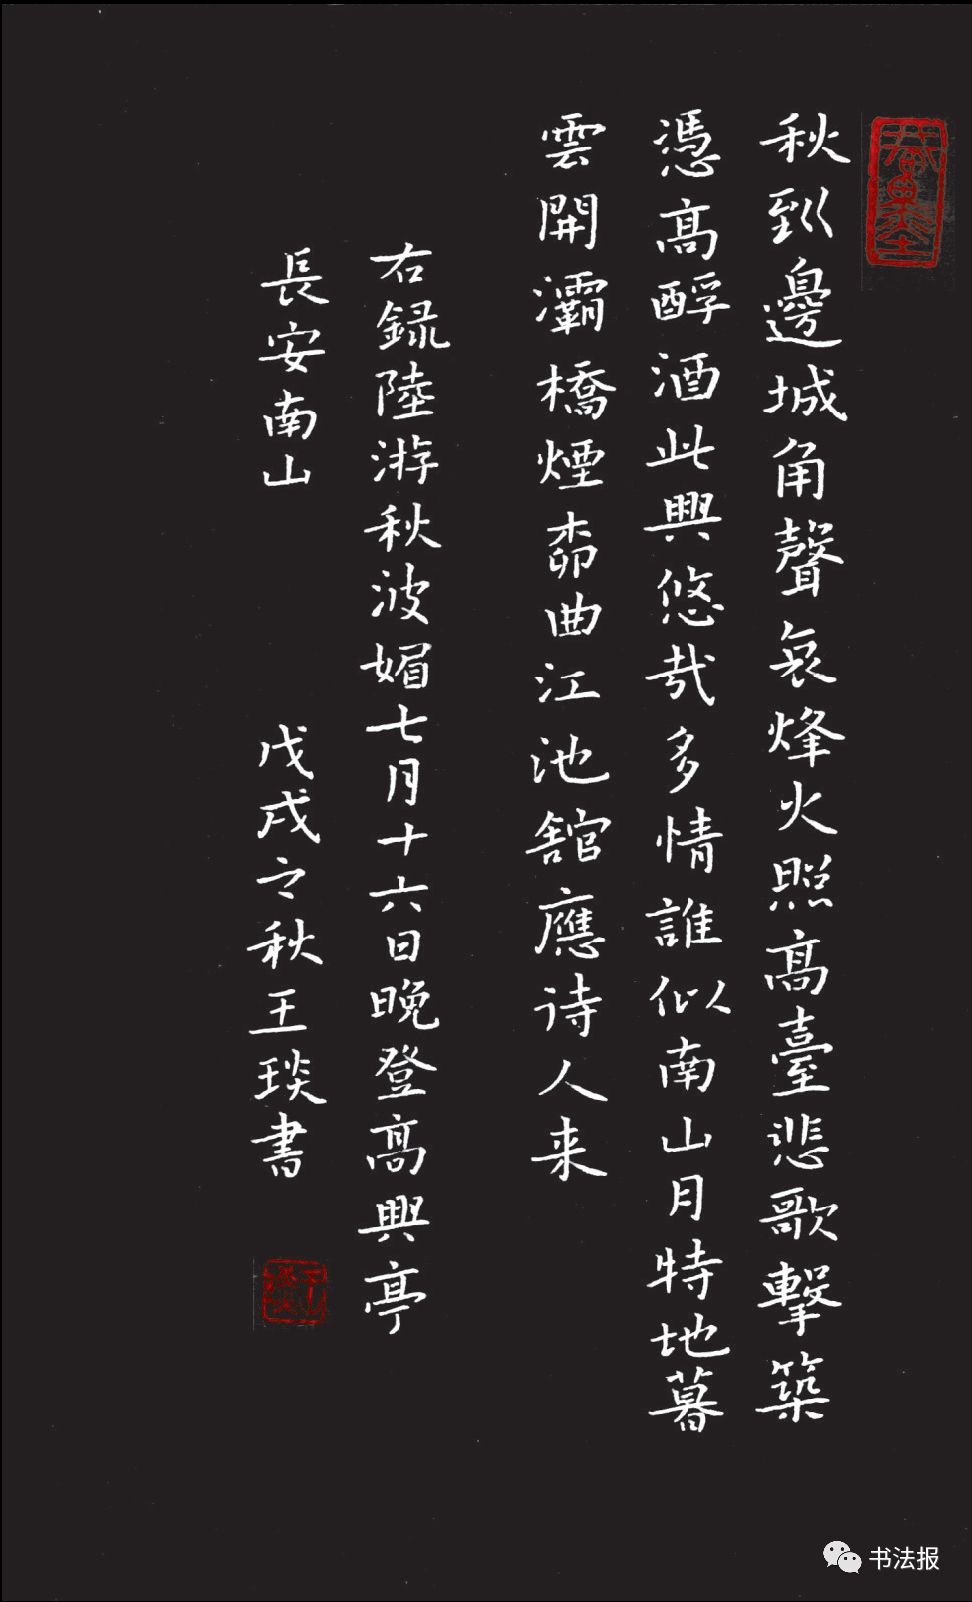 秋到邊城角聲哀烽火照高臺悲歌擊築
憑高酹酒此興悠哉多情誰似南山月特地暮
雲開灞橋煙柳曲江池館應待人来
右録陸游秋波媚七月十六日晚登高興亭
長安南山 戊戌之秋王琰書
书法报